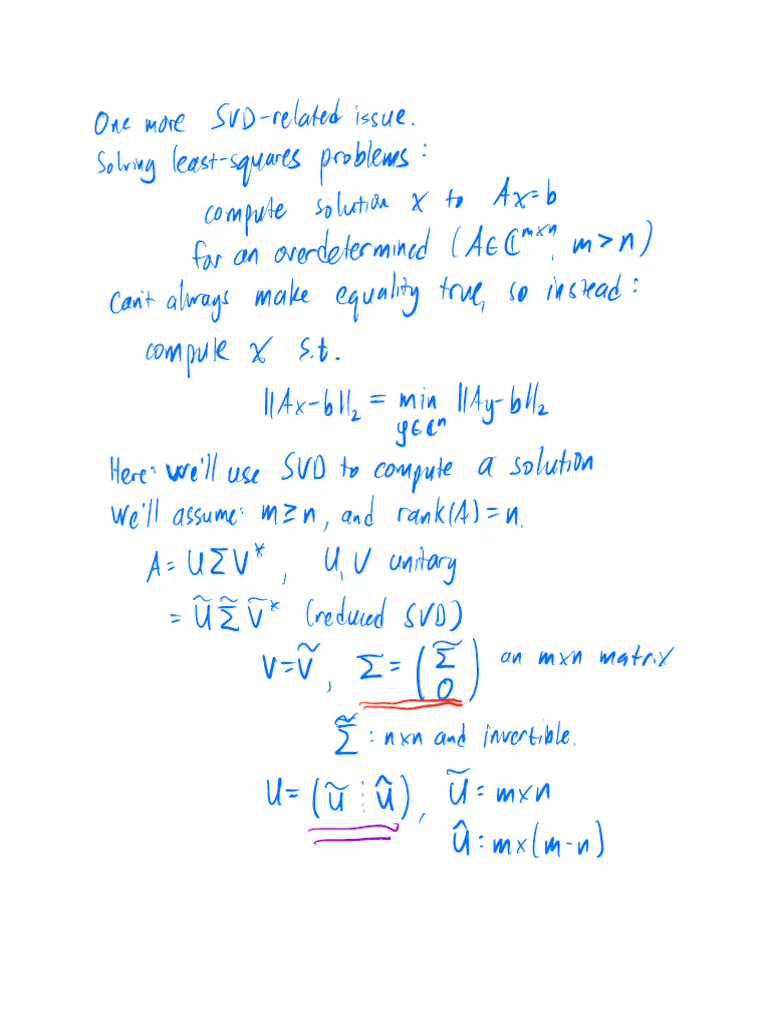 One more SVD-related issue.
Solving least-squares problems:
compute solution x to Ax=b
for an overdetermined (A∈ℂ^{m×n}, m>n)
Can't always make equality true, so instead:
compute x s.t.
||Ax-b||₂ = min_{y∈ℂⁿ} ||Ay-b||₂
Here: we'll use SVD to compute a solution
We'll assume: m≥n, and rank(A)=n.
A=UΣV*, U,V unitary
= ŨΣ̃Ṽ* (reduced SVD)
V=Ṽ, Σ=(Σ̃ 0) an m×n matrix
Σ̃: n×n and invertible.
U=(Ũ ⋮ Û), Ũ: m×n
Û: m×(m-n)